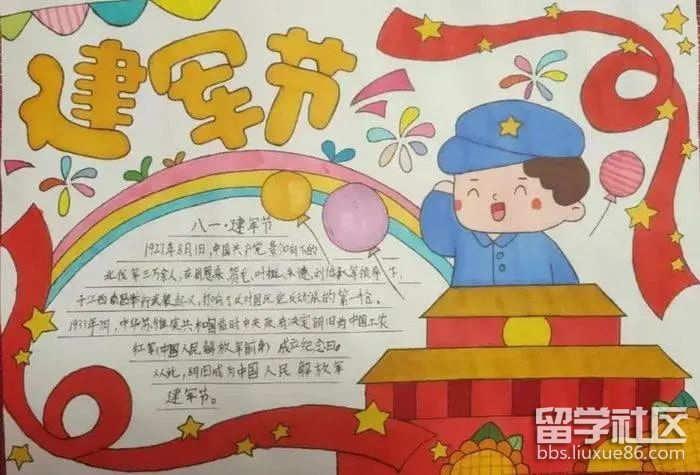 建军节
八一·建军节
1927年8月1日,中国共产党影响下的
北伐军三万余人,在周恩来、贺龙、叶挺、朱德、刘伯承等领导下,
于江西南昌举行武装起义,打响了反对国民党反动派的第一枪。
1933年7月,中华苏维埃共和国临时中央政府决定8月1日为中国工农
红军(中国人民解放军前身)成立纪念日。
从此,8月1日成为中国人民解放军
建军节。
留学社区
bbs.liuxue86.com